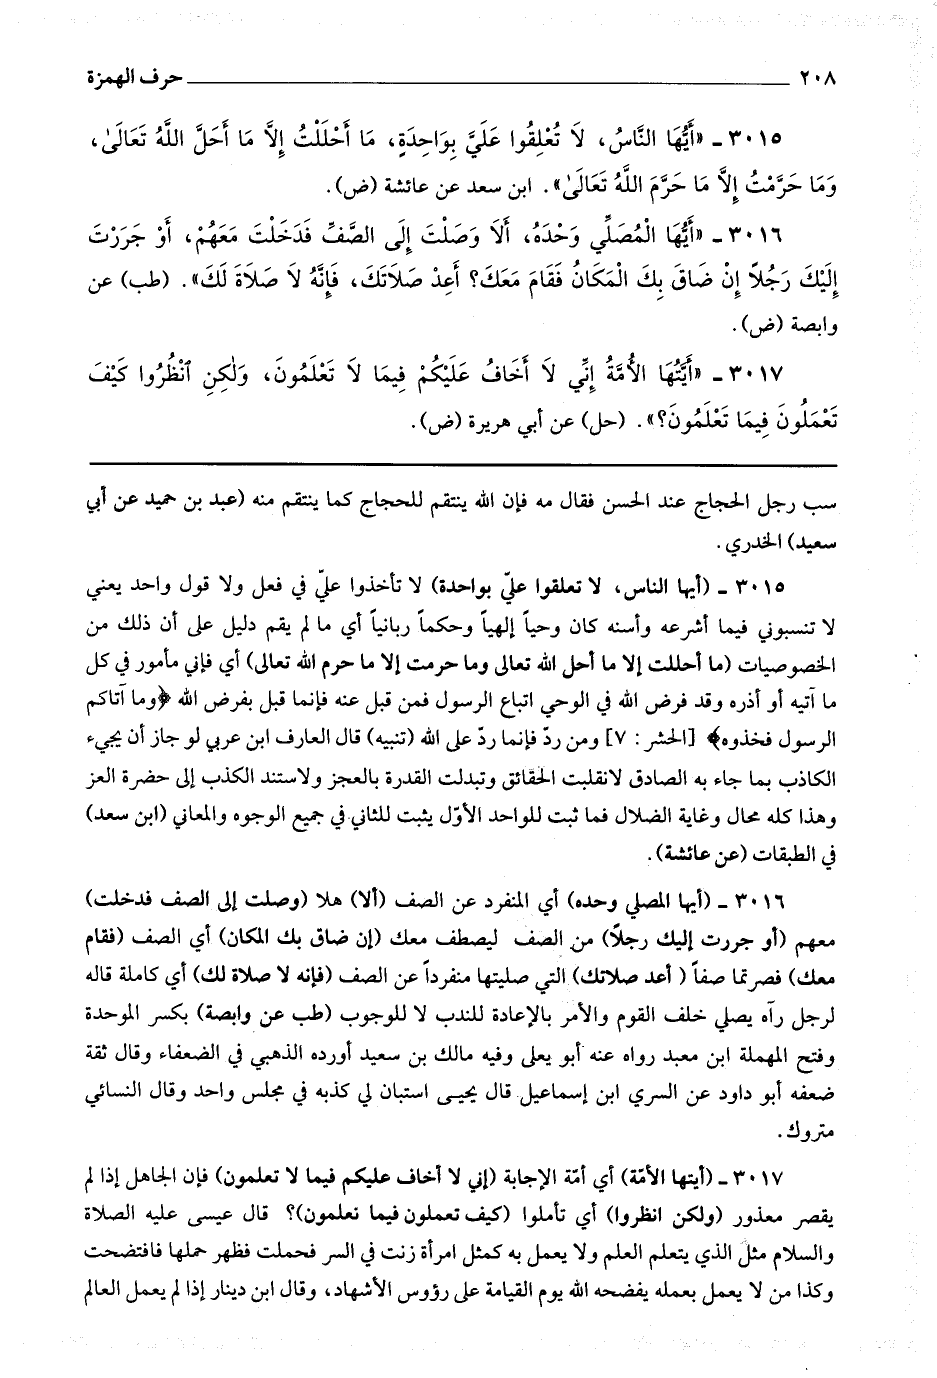 ٢٠٨ حرف الهمزة
٣٠١٥ ـ «أَيُّهَا النَّاسُ، لَا تُعْلِقُوا عَلَيَّ بِوَاحِدَةٍ، مَا أَحْلَلْتُ إِلَّا مَا أَحَلَّ اللَّهُ تَعَالَىٰ،
وَمَا حَرَّمْتُ إِلَّا مَا حَرَّمَ اللَّهُ تَعَالَىٰ». ابن سعد عن عائشة (ض).
٣٠١٦ ـ «أَيُّهَا الْمُصَلِّي وَحْدَهُ، أَلَا وَصَلْتَ إِلَى الصَّفِّ فَدَخَلْتَ مَعَهُمْ، أَوْ جَرَرْتَ
إِلَيْكَ رَجُلاً إِنْ ضَاقَ بِكَ الْمَكَانُ فَقَامَ مَعَكَ؟ أَعِدْ صَلَاتَكَ، فَإِنَّهُ لَا صَلَاةَ لَكَ». (طب) عن
وابصة (ض).
٣٠١٧ ـ «أَيَّتُهَا الأُمَّةُ إِنِّي لَا أَخَافُ عَلَيْكُمْ فِيمَا لَا تَعْلَمُونَ، وَلٰكِنِ ٱنْظُرُوا كَيْفَ
تَعْمَلُونَ فِيمَا تَعْلَمُونَ؟». (حل) عن أبي هريرة (ض).
سب رجل الحجاج عند الحسن فقال مه فإن الله ينتقم للحجاج كما ينتقم منه (عبد بن حميد عن أبي
سعيد) الخدري.
٣٠١٥ ـ (أيها الناس، لا تعلقوا عليّ بواحدة) لا تأخذوا عليّ في فعل ولا قول واحد يعني
لا تنسبوني فيما أشرعه وأسنه كان وحياً إلهياً وحكماً ربانياً أي ما لم يقم دليل على أن ذلك من
الخصوصيات (ما أحللت إلا ما أحل الله تعالى وما حرمت إلا ما حرم الله تعالى) أي فإني مأمور في كل
ما آتيه أو أذره وقد فرض الله في الوحي اتباع الرسول فمن قبل عنه فإنما قبل بفرض الله ﴿وما آتاكم
الرسول فخذوه﴾ [الحشر: ٧] ومن ردّ فإنما ردّ على الله (تنبيه) قال العارف ابن عربي لو جاز أن يجيء
الكاذب بما جاء به الصادق لانقلبت الحقائق وتبدلت القدرة بالعجز ولاستند الكذب إلى حضرة العز
وهذا كله محال وغاية الضلال فما ثبت للواحد الأوّل يثبت للثاني في جميع الوجوه والمعاني (ابن سعد)
في الطبقات (عن عائشة).
٣٠١٦ ـ (أيها المصلي وحده) أي المنفرد عن الصف (ألا) هلا (وصلت إلى الصف فدخلت)
معهم (أو جررت إليك رجلاً) من الصف ليصطف معك (إن ضاق بك المكان) أي الصف (فقام
معك) فصرتما صفاً (أعد صلاتك) التي صليتها منفرداً عن الصف (فإنه لا صلاة لك) أي كاملة قاله
لرجل رآه يصلي خلف القوم والأمر بالإعادة للندب لا للوجوب (طب عن وابصة) بكسر الموحدة
وفتح المهملة ابن معبد رواه عنه أبو يعلى وفيه مالك بن سعيد أورده الذهبي في الضعفاء وقال ثقة
ضعفه أبو داود عن السري ابن إسماعيل قال يحيى استبان لي كذبه في مجلس واحد وقال النسائي
متروك.
٣٠١٧ ـ (أيتها الأمّة) أي أمّة الإجابة (إني لا أخاف عليكم فيما لا تعلمون) فإن الجاهل إذا لم
يقصر معذور (ولكن انظروا) أي تأملوا (كيف تعملون فيما تعلمون)؟ قال عيسى عليه الصلاة
والسلام مثل الذي يتعلم العلم ولا يعمل به كمثل امرأة زنت في السر فحملت فظهر حملها فافتضحت
وكذا من لا يعمل بعمله يفضحه الله يوم القيامة على رؤوس الأشهاد، وقال ابن دينار إذا لم يعمل العالم